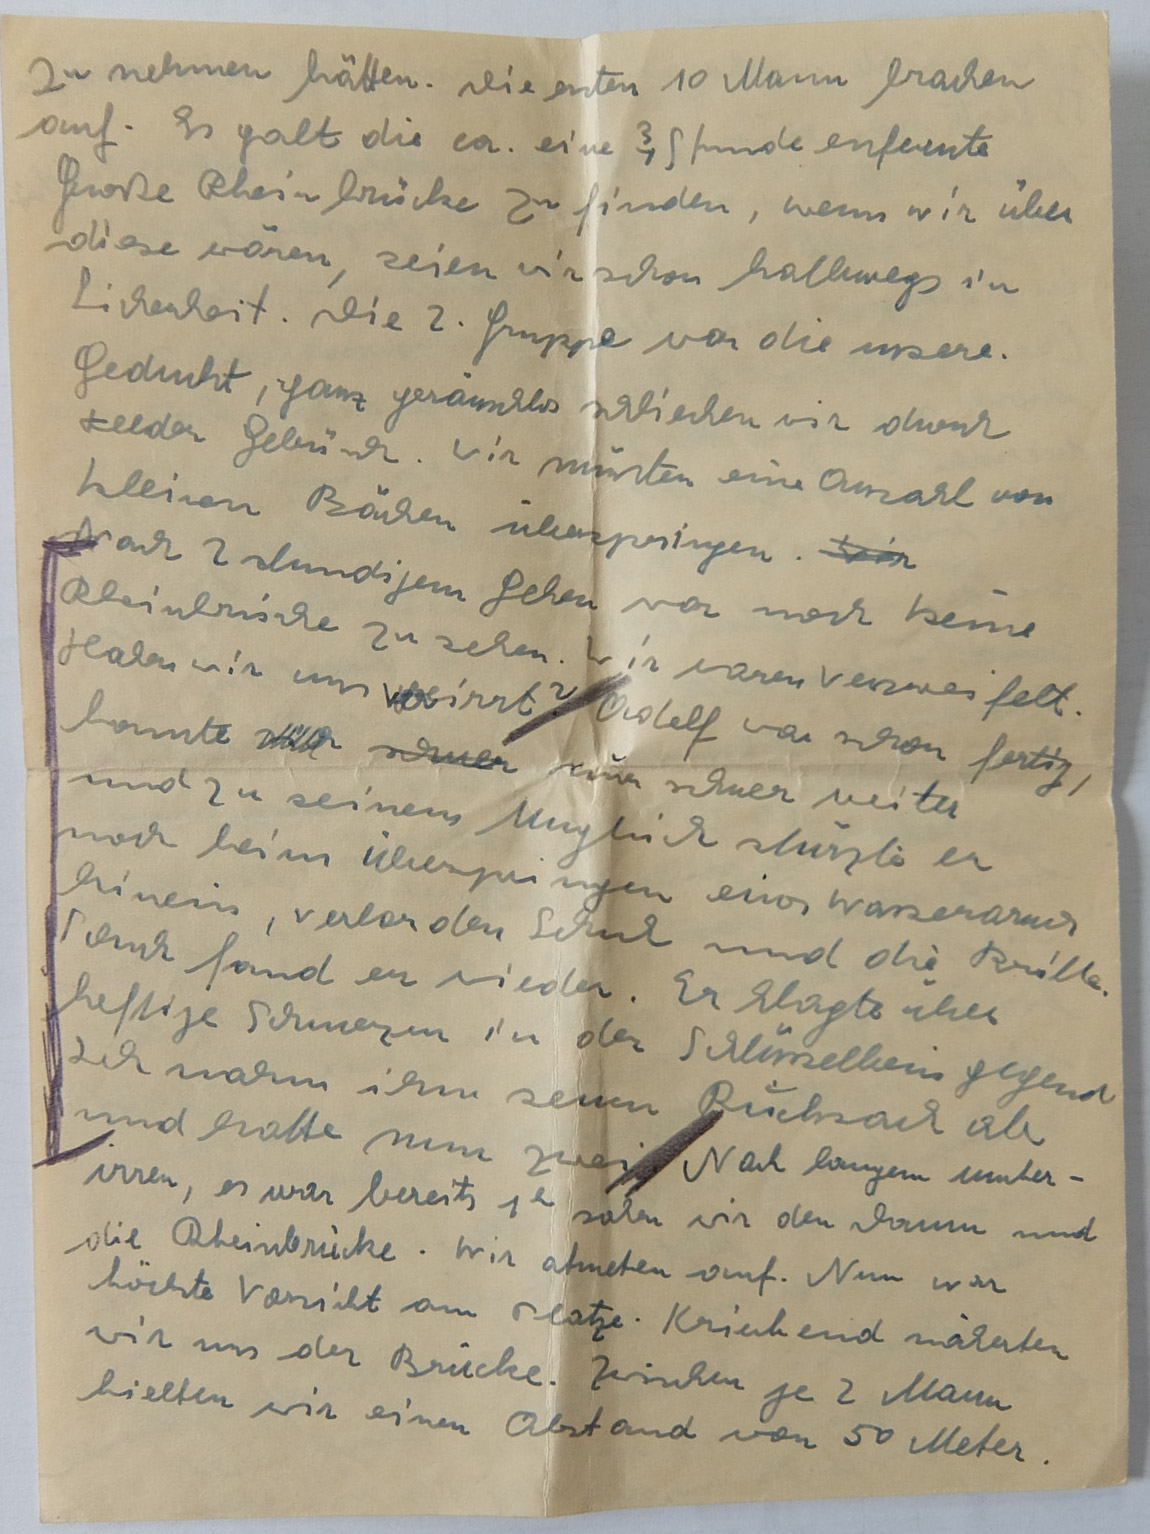 zu nehmen hätten. Die ersten 10 Mann brachen
auf. Es galt die ca. eine 3/4 Stunde entfernte
Große Rheinbrücke zu finden, wenn wir über
diese wären, seien wir schon halbwegs in
Sicherheit. Die 2. Gruppe war die unsere.
Geduckt, ganz geräuschlos schlichen wir durch
Felder Gebüsch. Wir mußten eine Anzahl von
kleinen Bächen überspringen. Wir
Nach 2 stundigem Gehen war noch keine
Rheinbrücke zu sehen. Wir waren verzweifelt.
Haben wir uns verirrt? Adolf war schon fertig,
konnte schwer nur schwer weiter
und zu seinem Unglück stürzte er
noch beim Überspringen eines Wasserarmes
hinein, verlor den Schuh und die Brille.
Schuh fand er wieder. Er klagte über
heftige Schmerzen in der Schlüsselbein gegend
Ich nahm ihm seinen Rucksack ab
und hatte nun zwei. Nach langem umher-
irren, es war bereits 1h sahen wir den Damm und
die Rheinbrücke. Wir atmeten auf. Nun war
höchste Vorsicht am Platze. Kriechend näherten
wir uns der Brücke. Zwischen je 2 Mann
hielten wir einen Abstand von 50 Meter.